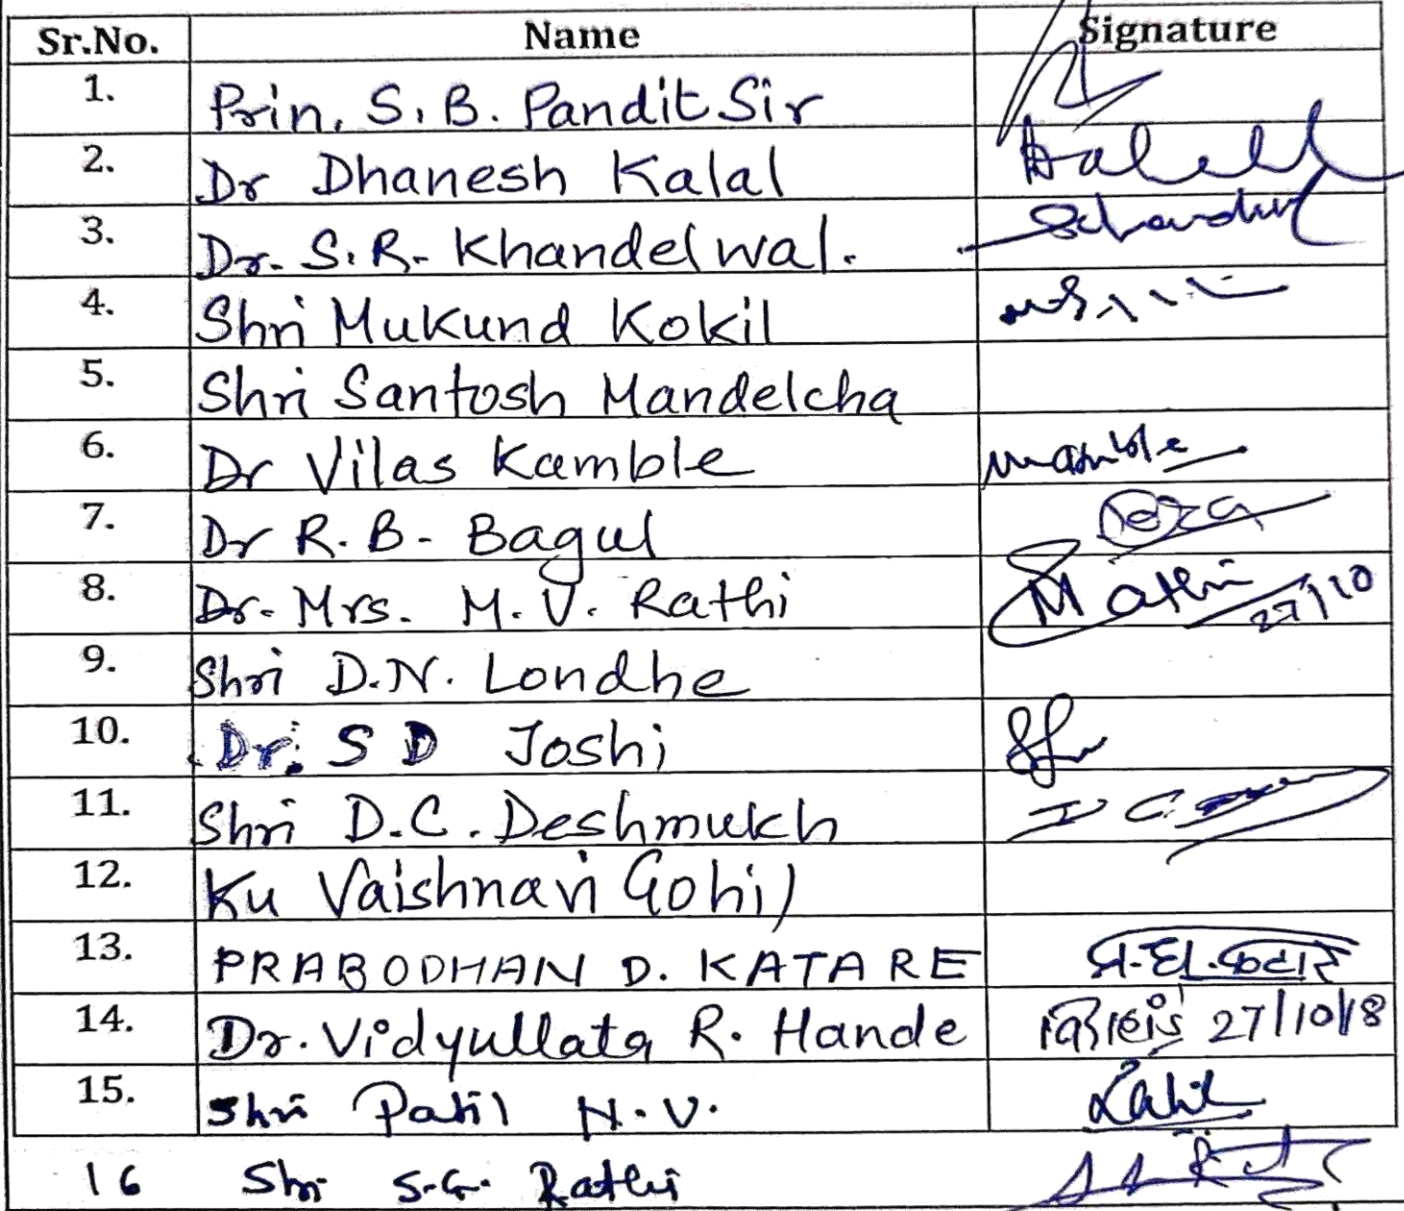 Sr.No. Name Signature
1. Prin. S. B. Pandit Sir
2. Dr Dhanesh Kalal
3. Dr. S. R. Khandelwal.
4. Shri Mukund Kokil
5. Shri Santosh Mandelcha
6. Dr Vilas Kamble
7. Dr R. B. Bagul
8. Dr. Mrs. M. V. Rathi 27/10
9. Shri D.N. Londhe
10. Dr. S D Joshi
11. Shri D.C. Deshmukh
12. Ku Vaishnavi Gohil
13. PRABODHAN D. KATARE प्र.द.कटारे
14. Dr. Vidyullata R. Hande 27/10/18
15. Shri Patil N.V.
16 Shri S.G. Rathi